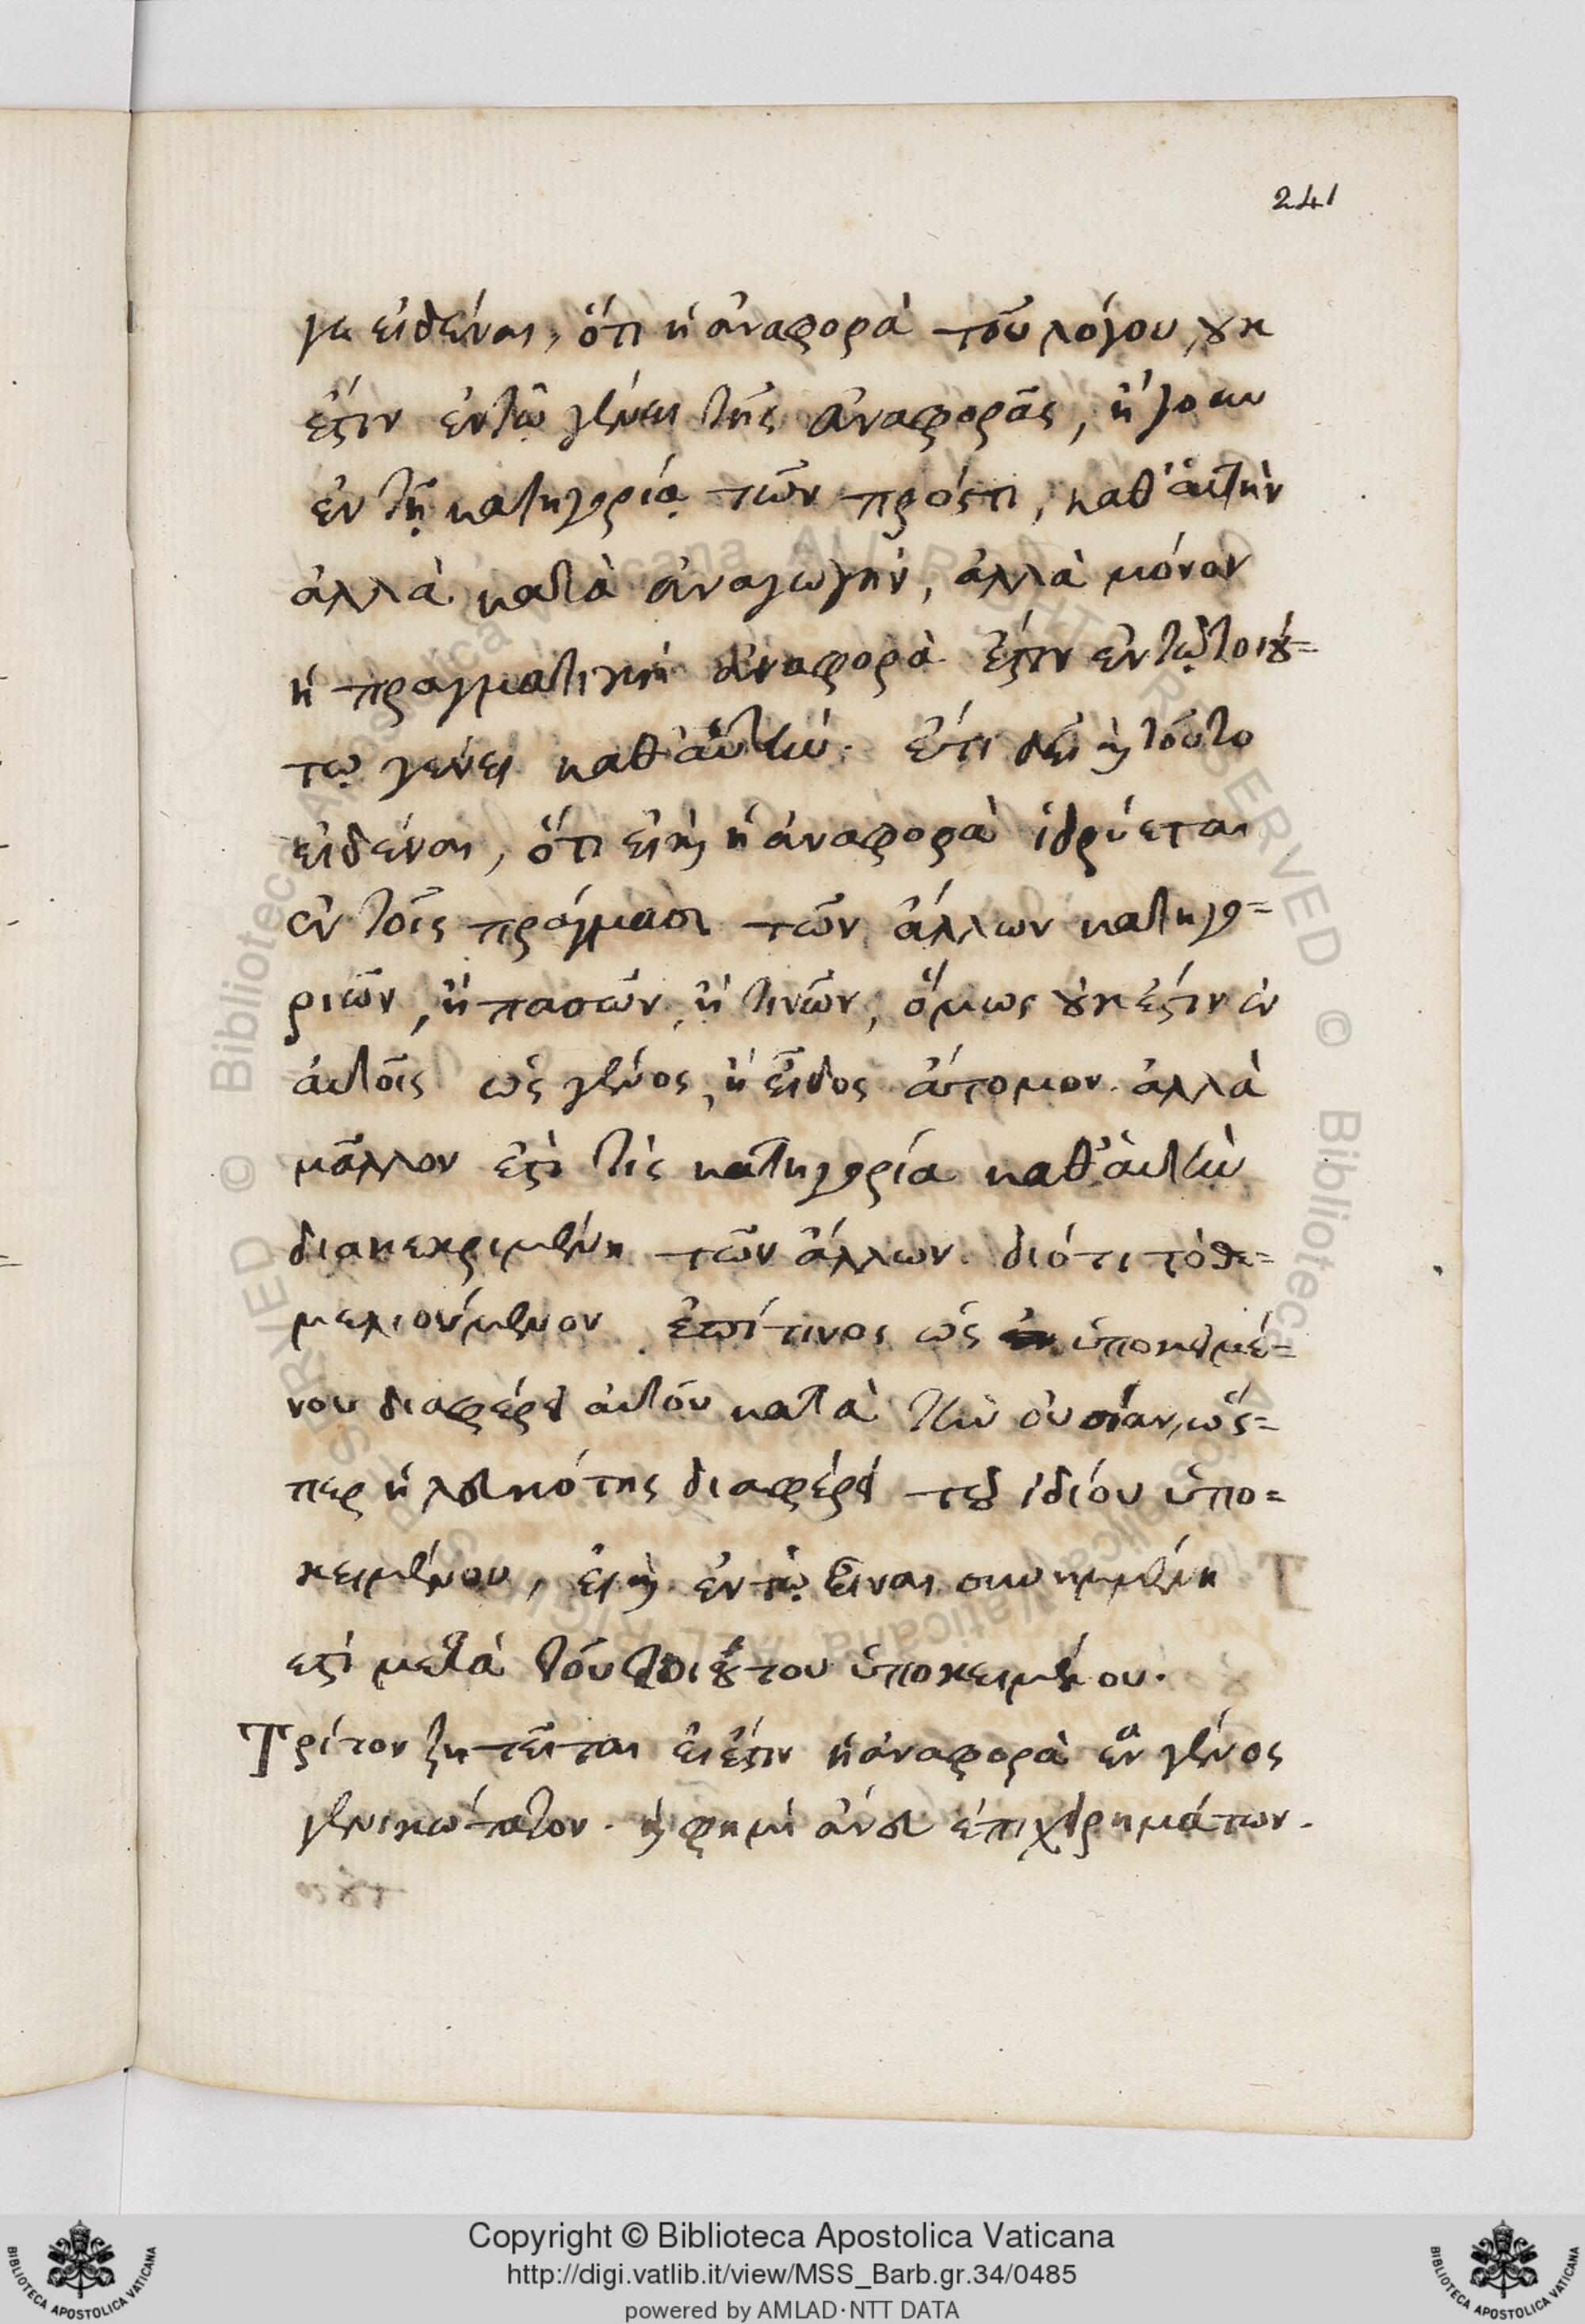 241
γε εἰδέναι, ὅτι ἡ ἀναφορὰ τοῦ λόγου, οὐκ
ἔστιν ἐν τῷ γένει τῆς ἀναφορᾶς, ἤγουν
ἐν τῇ κατηγορίᾳ τῶν πρόστι, καθ' αὑτὴν
ἀλλὰ κατὰ ἀναγωγὴν, ἀλλὰ μόνον
ἡ πραγματικὴ ἀναφορὰ ἔστιν ἐν τῷ τοιού=
τῳ γένει καθ' αὑτὴν. ἔτι δεῖ καὶ τοῦτο
εἰδέναι, ὅτι εἰ καὶ ἡ ἀναφορὰ ἱδρύεται
ἐν τοῖς πράγμασι τῶν ἄλλων κατηγο=
ριῶν, ἢ πασῶν, ἢ τινῶν, ὅμως οὐκ ἔστιν ἐν
αὐτοῖς ὡς γένος, ἢ εἶδος ἄτομον. ἀλλὰ
μᾶλλον ἐστὶ τὶς κατηγορία καθ' αὑτὴν
διακεκριμένη τῶν ἄλλων. διότι τὸ θε=
μελιούμενον ἐπί τινος ὡς ὑποκειμέ=
νου διαφέρει αὐτοῦ κατὰ τὴν οὐσίαν, ὥσ=
περ ἡ λευκότης διαφέρει τοῦ ἰδίου ὑπο=
κειμένου, εἰ καὶ ἐν τῷ εἶναι συνημμένη
ἐστὶ μετὰ τοῦ τοιούτου ὑποκειμένου.
Τρίτον ζητεῖται εἰ ἔστιν ἡ ἀναφορὰ ἓν γένος
γενικώτατον. καὶ φημὶ ἄνευ ἐπιχειρημάτων.
Copyright © Biblioteca Apostolica Vaticana
http://digi.vatlib.it/view/MSS_Barb.gr.34/0485
powered by AMLAD·NTT DATA
BIBLIOTECA APOSTOLICA VATICANA
BIBLIOTECA APOSTOLICA VATICANA